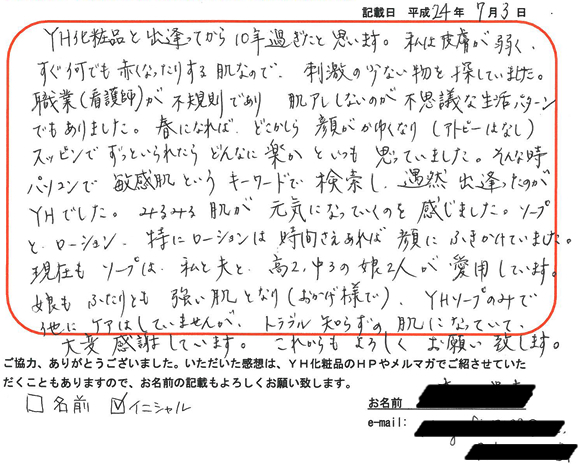 記載日 平成24年 7月3日
YH化粧品と出逢ってから10年過ぎたと思います。私は皮膚が弱く、
すぐ何でも赤くなったりする肌なので、刺激の少ない物を探していました。
職業(看護師)が不規則であり 肌アレしないのが不思議な生活パターン
でもありました。春になれば、どこかしら顔がかゆくなり(アトピーはなし)
スッピンでずっといられたらどんなに楽かといつも思っていました。そんな時
パソコンで敏感肌というキーワードで検索し、偶然出逢ったのが
YHでした。みるみる肌が元気になっていくのを感じました。ソープ
と、ローション、特にローションは時間さえあれば顔にふきかけていました。
現在もソープは、私と夫と、高2、中3の娘2人が愛用しています。
娘もふたりとも強い肌となり(おかげ様で)、YHソープのみで
他にケアはしていませんが、トラブル知らずの肌になっていて、
大変感謝しています。これからもよろしくお願い致します。
ご協力、ありがとうございました。いただいた感想は、YH化粧品のHPやメルマガでご紹させていた
だくこともありますので、お名前の記載もよろしくお願い致します。
□ 名前 ☑ イニシャル
お名前
e-mail: